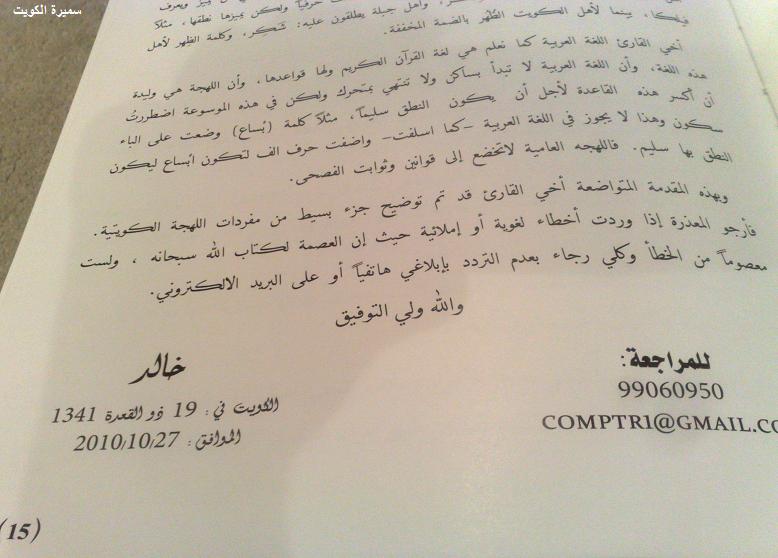 سميرة الكويت
فيلكا، بينما لأهل الكويت الظُهُر بالضمة المخففة.
وأهل جبلة يطلقون عليه: شَكَر، وكلمة الظهر لأهل
أخي القارئ اللغة العربية كما نعلم هي لغة القرآن الكريم ولها قواعدها، وأن اللهجة هي وليدة
هذه اللغة، وأن اللغة العربية لا تبدأ بساكن ولا تنتهي بمتحرك ولكن في هذه الموسوعة اضطررتُ
أن أكسر هذه القاعدة لأجل أن يكون النطق سليماً، مثلاً كلمة (بُساع) وضعت على الباء
سكون وهذا لا يجوز في اللغة العربية -كما اسلفت- واضفت حرف الف لتكون ابُساع ليكون
النطق بها سليم. فاللهجه العامية لاتخضع إلى قوانين وثوابت الفصحى.
وبهذه المقدمة المتواضعة أخي القارئ قد تم توضيح جزء بسيط من مفردات اللهجة الكويتية.
فأرجو المعذرة إذا وردت أخطاء لغوية أو إملائية حيث إن العصمة لكتاب الله سبحانه ، ولست
معصوماً من الخطأ وكلي رجاء بعدم التردد بإبلاغي هاتفياً أو على البريد الالكتروني.
والله ولي التوفيق
للمراجعة:
99060950
COMPTR1@GMAIL.CO
خالد
الكويت في: 19 ذو القعدة 1341
الموافق: 2010/10/27
(15)